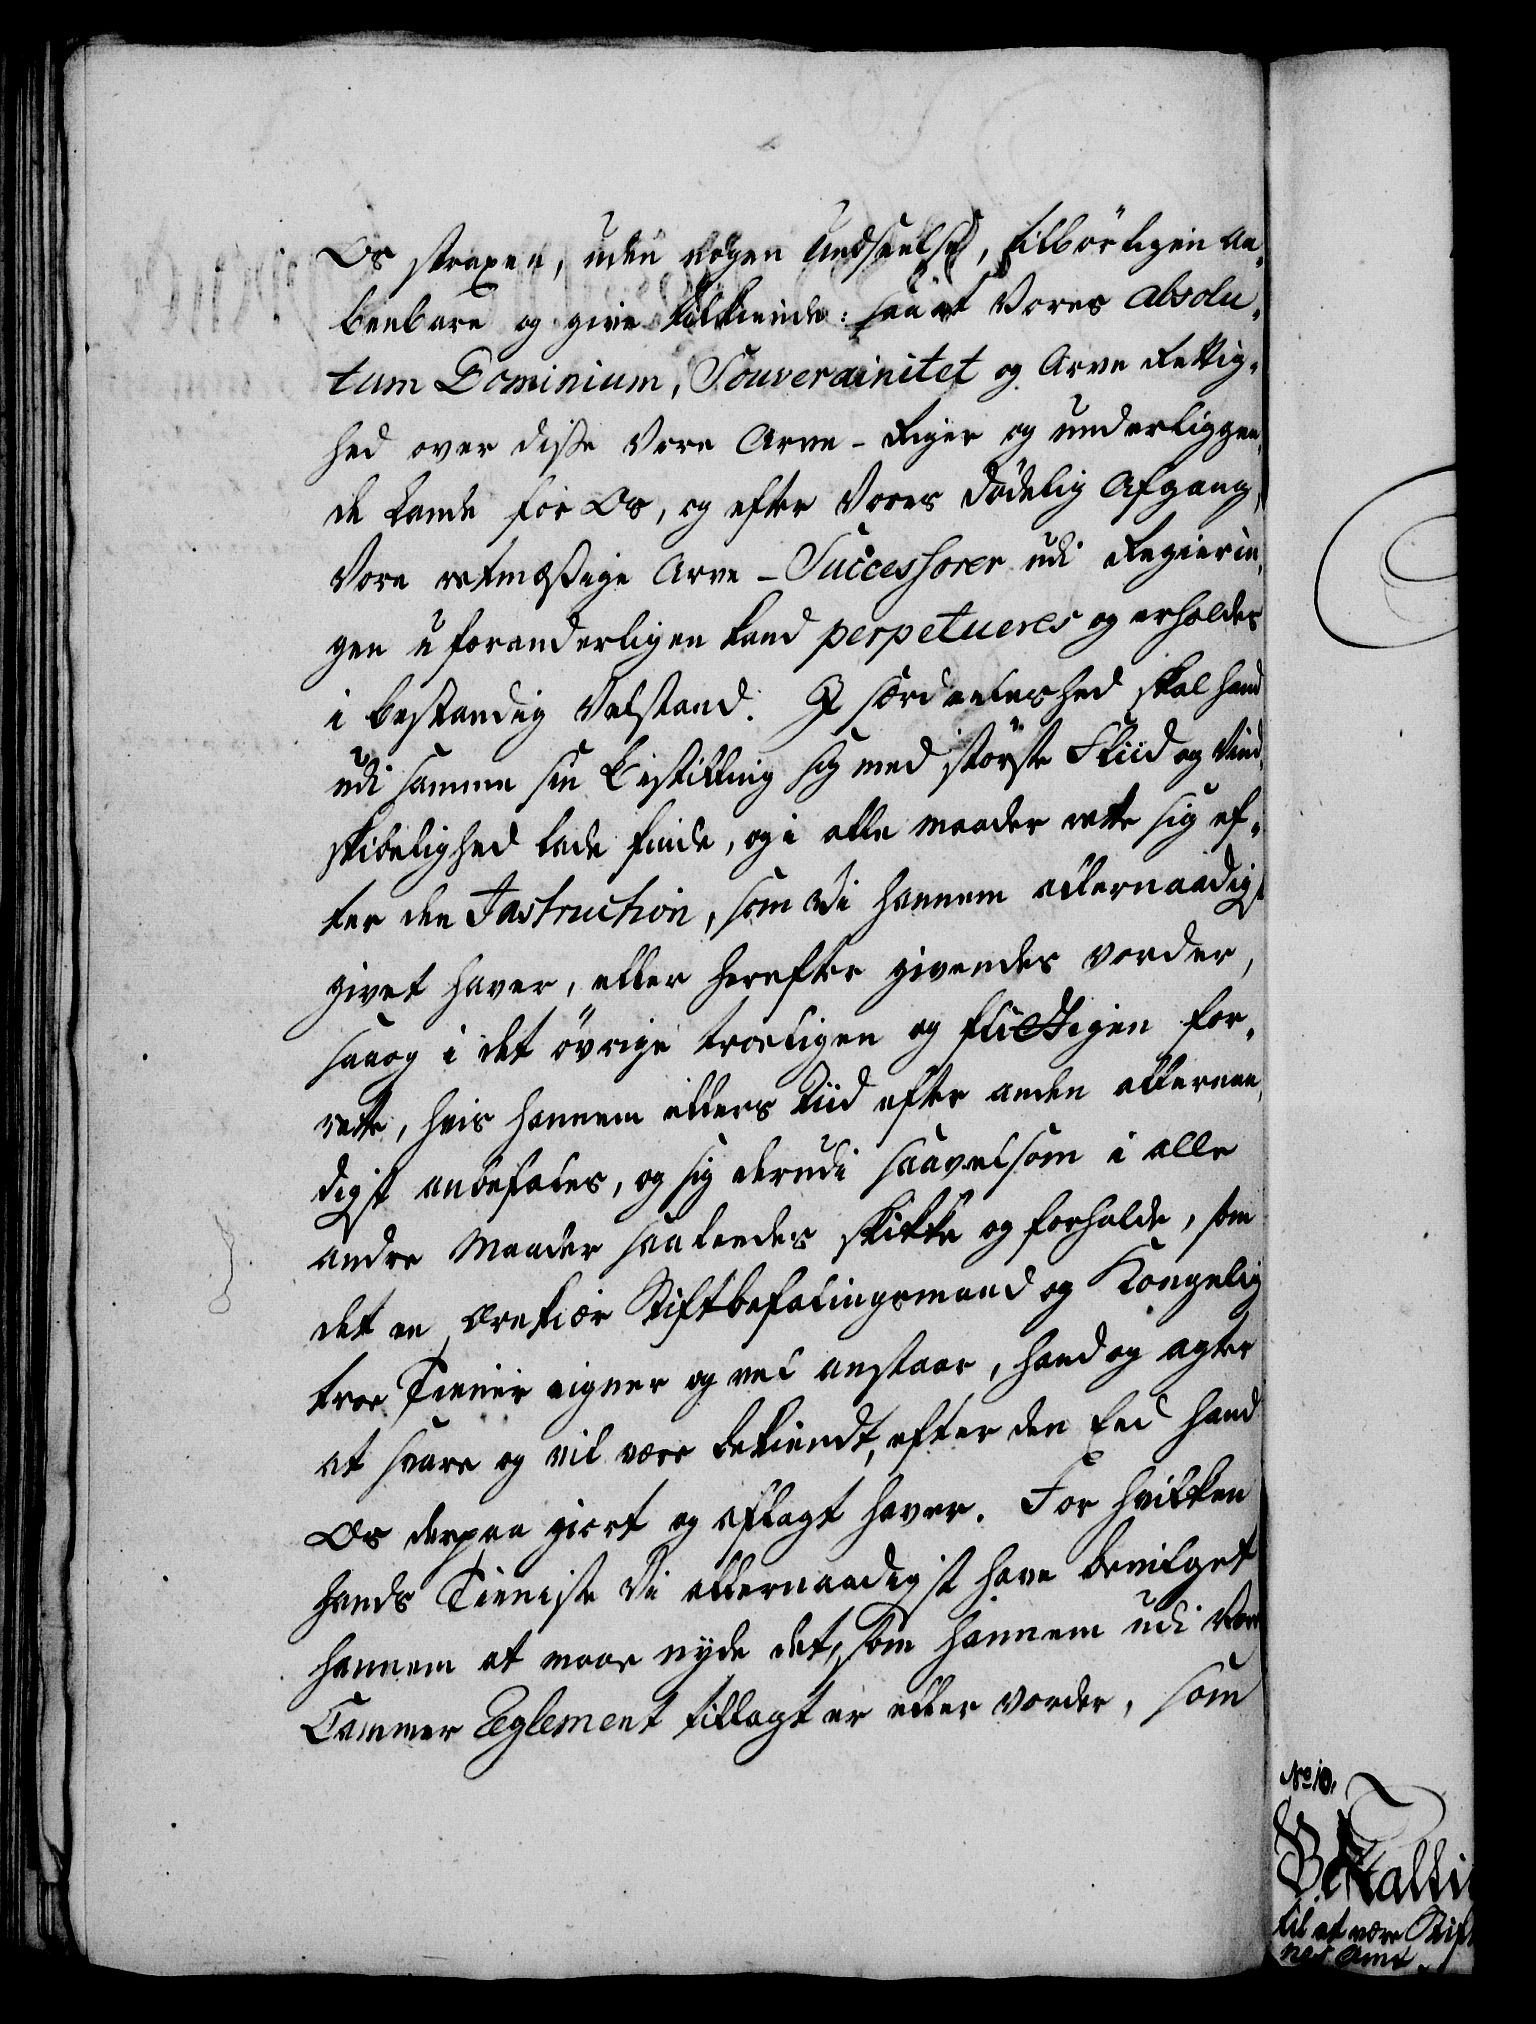 Os straxen, uden nogen Undseelse, tilbörligen aa„
benbare og give tilkiende: saa at Vores absolu„
tum Dominium, Souverainitet og Arve Rettig„
hed over disse Vore Arve-Riger og underliggen„
de Lande for Os, og efter Vores dödelig Afgang,
Vore retmæssige Arve-Successorer udi Regierin„
gen uforanderligen kand perpetueres og erholdes
i bestandig Velstand. I særdeeleshed skal hand
udi samme sin Bestilling sig med störste Fliid og Vind„
skibelighed lade finde, og i alle maader rette sig ef„
ter den Instruction, som Vi hannem allernaadigst
givet haver, eller herefter givendes vorder,
saa og i det övrige troeligen og flittigen for„
rette, hvis hannem ellers tiid efter anden allernaa„
digst anbefales, og sig derudi saavelsom i alle
andre Maader saaledes skikke og forholde, som
det en ærekiær Stiftbefalingsmand og Kongelig
troe Tiener eigner og vel anstaar, hand og agter
at svare og vil være bekiendt, efter den Eed hand
Os derpaa giort og aflagt haver. For hvilken
hands Tieniste Vi allernaadigst have bevilget
hannem at maae nyde det, som hannem udi Vor
Cammer Reglement tillagt er eller vorder, som
No 10.
Bestalli
til at være Stift